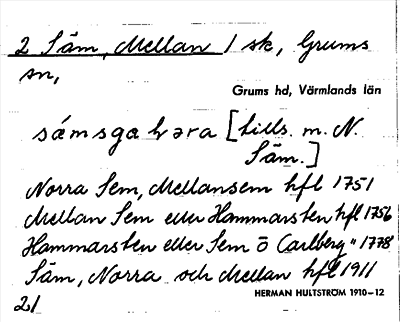 2 Säm, Mellan 1 sk, Grums
sn,
Grums hd, Värmlands län
sámsga bəra [tills. m. N.
Säm.]
Norra Sem, Mellansem hfl 1751
Mellan Sem eller Hammarsten hfl 1756
Hammarsten eller Sem ö Carlberg " 1778
Säm, Norra och Mellan hfl 1911
21
HERMAN HULTSTRÖM 1910–12